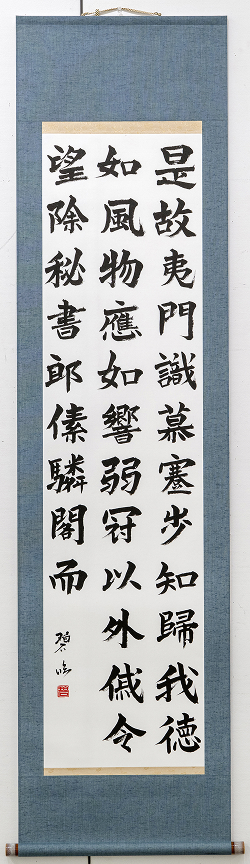 是故夷門識慕蹇步知歸我德
如風物應如響弱冠以外戚令
望除秘書郎傃驎閣而